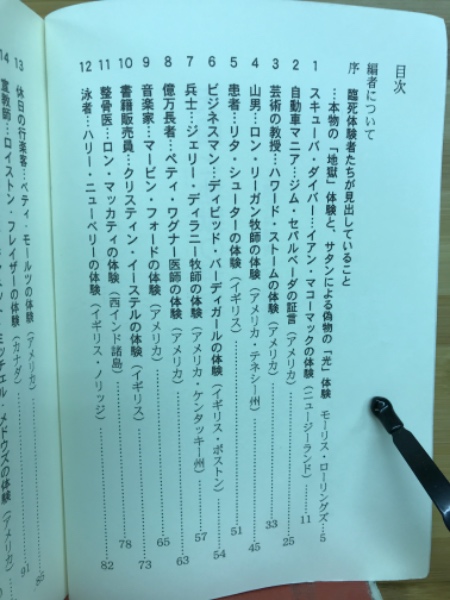 目次
編者について
序 臨死体験者たちが見出していること
…本物の「地獄」体験と、サタンによる偽物の「光」体験 モーリス・ローリングズ…5
1 スキューバ・ダイバー…イアン・マコーマックの体験(ニュージーランド)……11
2 自動車マニア…ジム・セパルベーダの証言(アメリカ)……25
3 芸術の教授…ハワード・ストームの体験(アメリカ)……33
4 山男…ロン・リーガン牧師の体験(アメリカ・テネシー州)……45
5 患者…リタ・シューターの体験(イギリス)……51
6 ビジネスマン…ディビッド・バーディガールの体験(イギリス・ボストン)……54
7 兵士…ジェリー・ディラニー牧師の体験(アメリカ・ケンタッキー州)……57
8 億万長者…ベティ・ワグナー医師の体験(アメリカ)……63
9 音楽家…マービン・フォードの体験(アメリカ)……65
10 書籍販売員…クリスティン・イーステルの体験(イギリス)……73
11 整骨医…ロン・マッカティの体験(西インド諸島)……78
12 泳者…ハリー・ニューベリーの体験(イギリス・ノリッジ)……82
13 休日の行楽客…ベティ・モールツの体験(アメリカ)
14 宣教師…ロイストン・フレイザーの体験(カナダ)……91
ミッチェル・メドウズの体験(アメリカ)